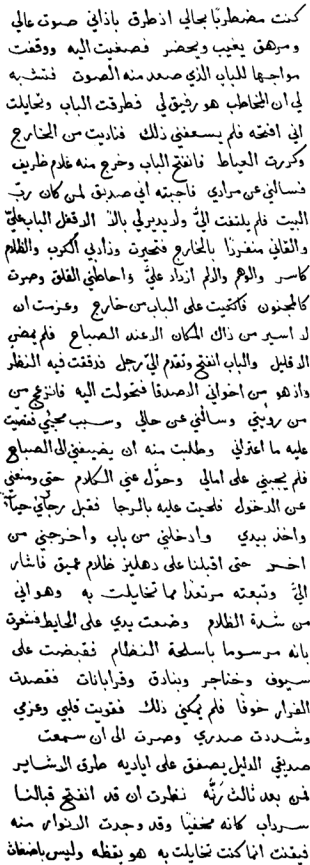 كنت مضطربًا بحالي اذ طرق باذاني صوت عالي
ومرهق يغيب ويحضر فصغيت اليه ووقفت
مواجهًا للباب الذي صعد منه الصوت فتشبه
لي ان المخاطب هو رفيق لي فطرقت الباب وتحايلت
اني افتحه فلم يسعفني ذلك فناديت من الخارج
وكررت العياط فانفتح الباب وخرج منه غلام ظريف
فسالني عن مرادي فاجبته أني صديق لمن كان ربّ
البيت فلم يلتفت اليَّ ولا يدير لي بالاً الا وقفل الباب عليّ
والقاني منفرزًا بالخارج فتحيرت وزاد بي الكرب والظلام
كاسر والوهم والالم ازداد عليَّ واحاطني القلق وصرت
كالمجنون فاتكيت على الباب من خارج وعزمت ان
لا اسير من ذاك المكان الا عند الصباح فلم يمض
الا قليل والباب انفتح وتقدم اليّ رجل فدققت فيه النظر
واذ هو من اخواني الاصدقا فتحولت اليه فانزعج من
رؤيتي وسالني عن حالي وسبب مجيئي فقصّيت
عليه ما اعتراني وطلبت منه ان يضيفني الى الصباح
فلم يجبني على امالي وحوّل عني الكلام حتى ومنعني
عن الدخول فلحيت عليه بالرجا فقبل رجائي حياءً
واخذ بيدي وادخلني من باب واخرجني من
اخر حتى اقبلنا على دهليز ظلام عميق فاشار
اليَّ وتبعته مرتعدًا مما تخايلت به وهو اني
من شدة الظلام وضعت يدي على الحايط فشعرت
بانه مرسوما باسلحة النظام فقبضت على
سيوف وخناجر وبنادق وقرابانات فقصدت
الفرار خوفا فلم يمكني ذلك فقويت قلبي وعزمي
وشددت صدري وصرت الى ان سمعت
صديقي الدليل يصفق على اياديه طرق الاشاير
فمن بعد ثالث رنَّة نظرت ان قد انفتح قبالنا
سرداب كانه مخفيا وقد وجدت الانوار منه
فيقنت انما كنت تخايلت به هو يقظه وليس باضغاث